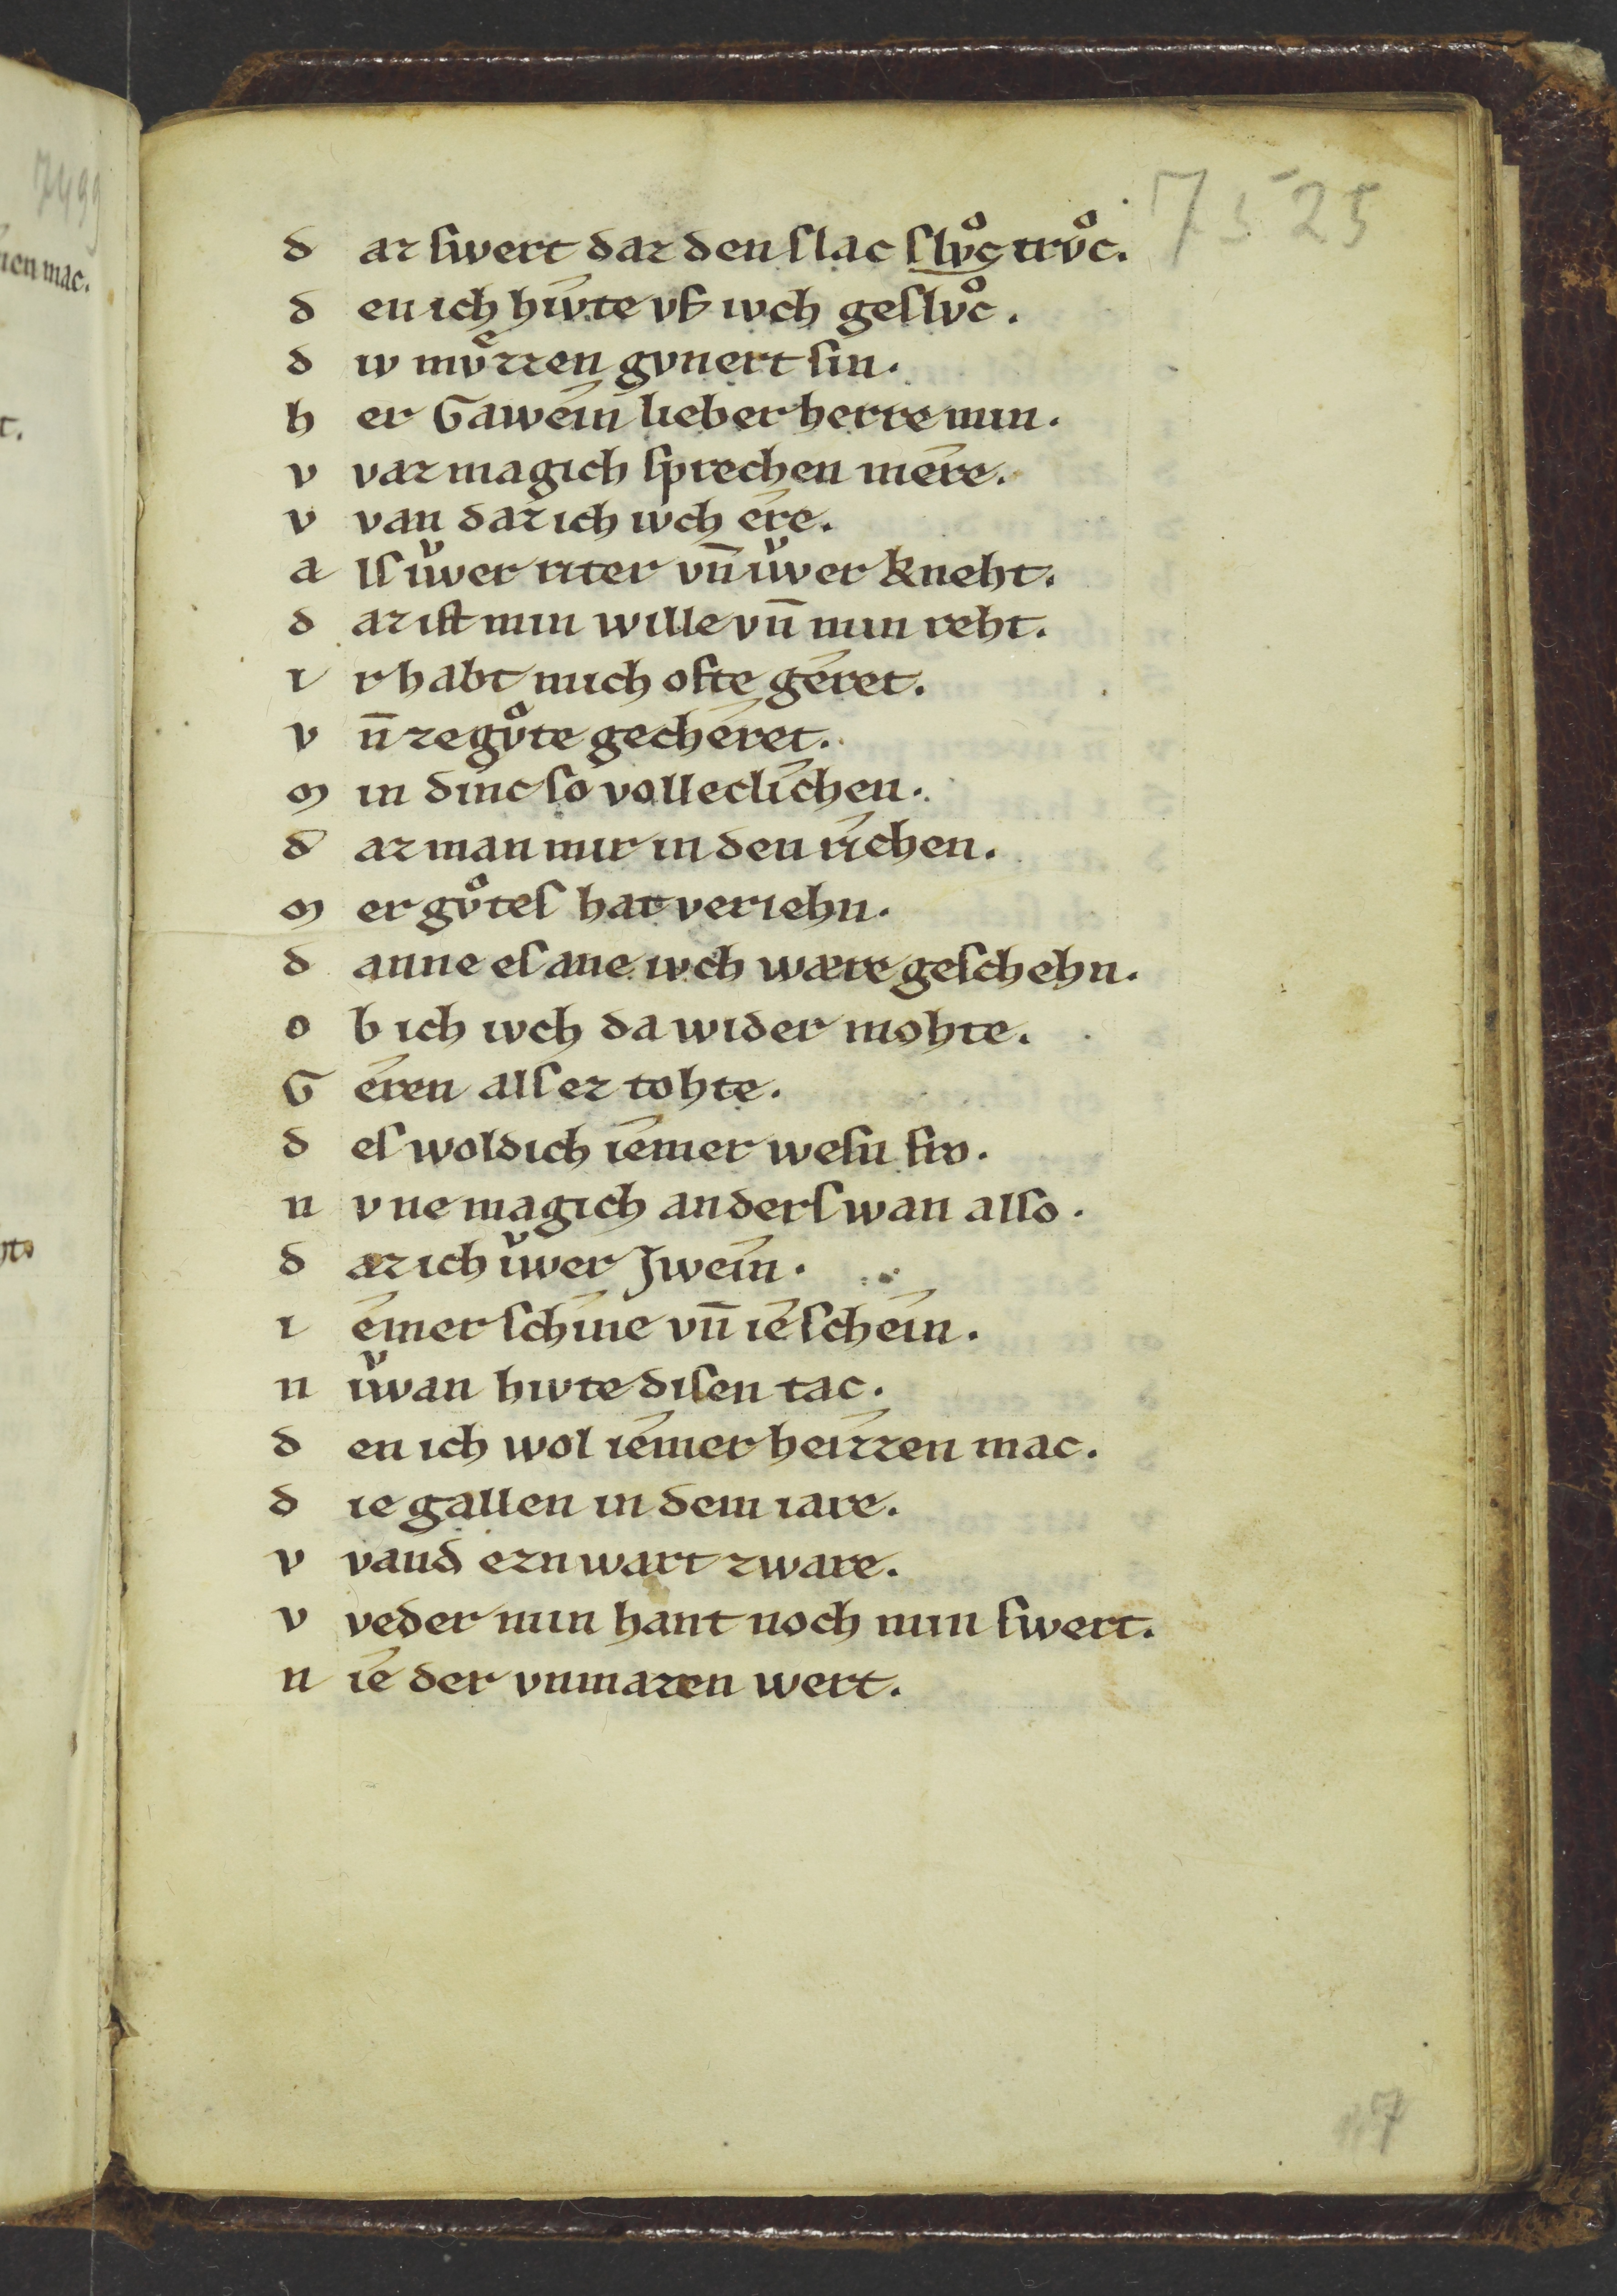 7499
nen mac.
t.
7525
d az swert daz den slac slvͦc trvͦc.
d en ich hívte vf ivch geslvͦc.
d iv mvͤzzen gvnert sin.
h er Gaweín lieber herre min.
v vaz mag ich sprechen mére.
v van daz ich ivch ére.
a ls iͮwer riter vn̄ iͮwer kneht.
d az ist min wille vn̄ min reht.
i r habt mich ofte géret.
v n̄ ze gvͦte gechéret.
m in dínc so volleclíchen.
d az man mir in den ríchen.
m er gvͦtes hat veriehn.
d anne es ane ivch wære geschehn.
o b ich ivch da wider mohte.
G éren als ez tohte.
d es wold ich íemer wesn fro.
n v ne mag ich anders wan also.
d az ich iͮwer Jweín.
i emer schíne vn̄ íe scheín.
n iͮwan hivte disen tac.
d en ich wol íemer heizzen mac.
d ie gallen in dem iare.
v vand ezn wart zware.
v veder min hant noch min swert.
n íe der vnmazen wert.
147